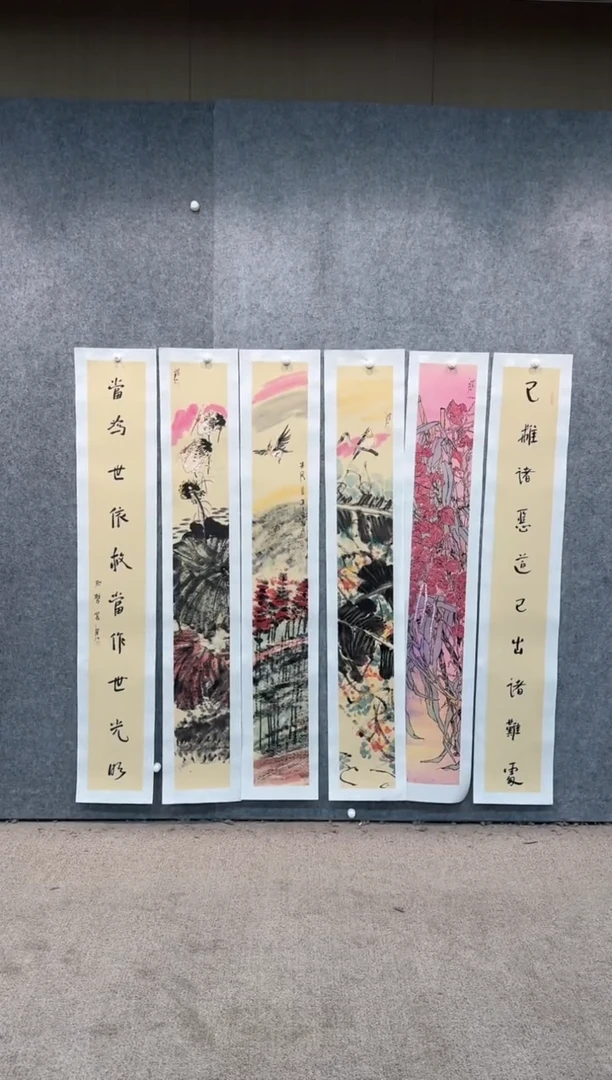 已離諸惡道已出諸難處
當為世依救當作世光明